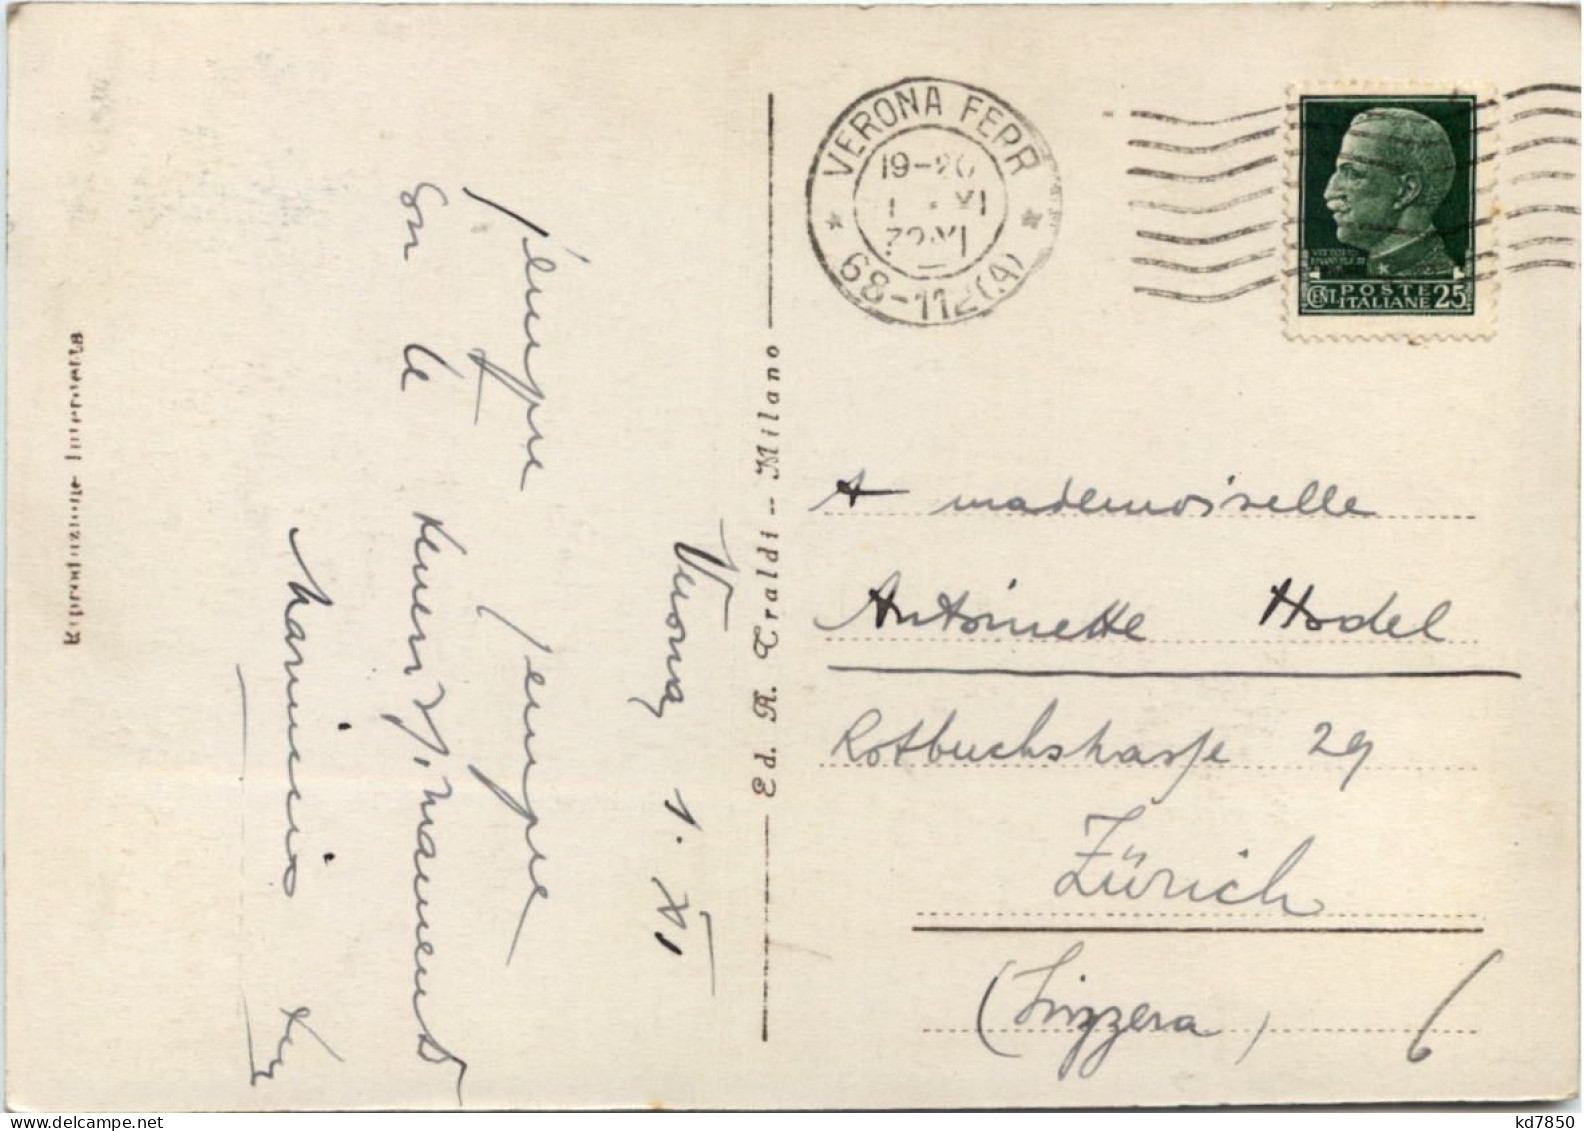 Verona, 1. XI
sempre sempre
con te
Riproduzione Interdetta
Ed. A. Traldi -- Milano
VERONA FERR
19-20
1 · XI
68-112(A)
VITTORIO
EMANUELE III
CENT. POSTE
ITALIANE 25
A mademoiselle
Antoinette Hodel
Rotbuchstrasse 29
Zürich
6
(Svizzera)
kd7850